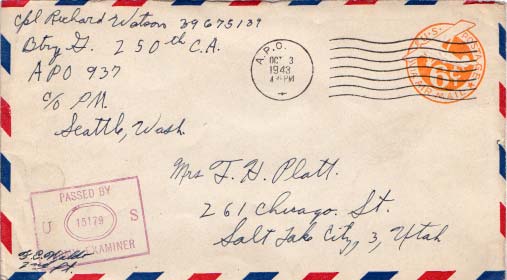 Cpl Richard Watson 39675139
Btry G. 250th C.A.
APO 937
c/o PM.
Seattle, Wash
A.P.O.
OCT 3
1943
PM
U.S. POSTAGE
6¢
VIA AIR MAIL
Mrs F. H. Platt.
261 Chicago. St.
Salt Lake City, 3, Utah
PASSED BY
U 15179 S
EXAMINER
2nd Lt.